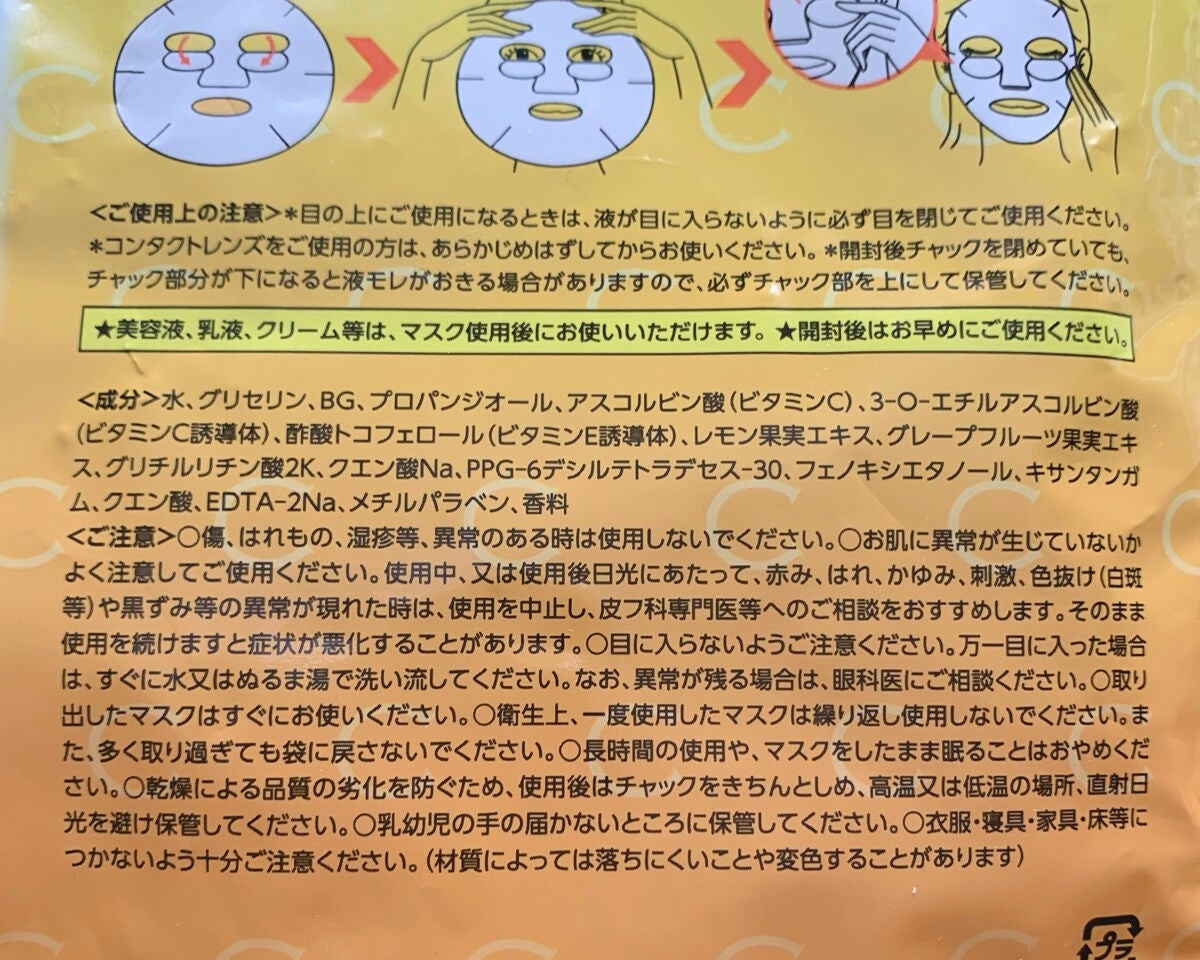 <ご使用上の注意>*目の上にご使用になるときは、液が目に入らないように必ず目を閉じてご使用ください。
*コンタクトレンズをご使用の方は、あらかじめはずしてからお使いください。*開封後チャックを閉めていても、
チャック部分が下になると液モレがおきる場合がありますので、必ずチャック部を上にして保管してください。
★美容液、乳液、クリーム等は、マスク使用後にお使いいただけます。★開封後はお早めにご使用ください。
<成分>水、グリセリン、BG、プロパンジオール、アスコルビン酸(ビタミンC)、3-O-エチルアスコルビン酸
(ビタミンC誘導体)、酢酸トコフェロール(ビタミンE誘導体)、レモン果実エキス、グレープフルーツ果実エキ
ス、グリチルリチン酸2K、クエン酸Na、PPG-6デシルテトラデセス-30、フェノキシエタノール、キサンタンガ
ム、クエン酸、EDTA-2Na、メチルパラベン、香料
<ご注意>○傷、はれもの、湿疹等、異常のある時は使用しないでください。○お肌に異常が生じていないか
よく注意してご使用ください。使用中、又は使用後日光にあたって、赤み、はれ、かゆみ、刺激、色抜け(白斑
等)や黒ずみ等の異常が現れた時は、使用を中止し、皮フ科専門医等へのご相談をおすすめします。そのまま
使用を続けますと症状が悪化することがあります。○目に入らないようご注意ください。万一目に入った場合
は、すぐに水又はぬるま湯で洗い流してください。なお、異常が残る場合は、眼科医にご相談ください。○取り
出したマスクはすぐにお使いください。○衛生上、一度使用したマスクは繰り返し使用しないでください。ま
た、多く取り過ぎても袋に戻さないでください。○長時間の使用や、マスクをしたまま眠ることはおやめくだ
さい。○乾燥による品質の劣化を防ぐため、使用後はチャックをきちんとしめ、高温又は低温の場所、直射日
光を避け保管してください。○乳幼児の手の届かないところに保管してください。○衣服・寝具・家具・床等に
つかないよう十分ご注意ください。(材質によっては落ちにくいことや変色することがあります)
プラ